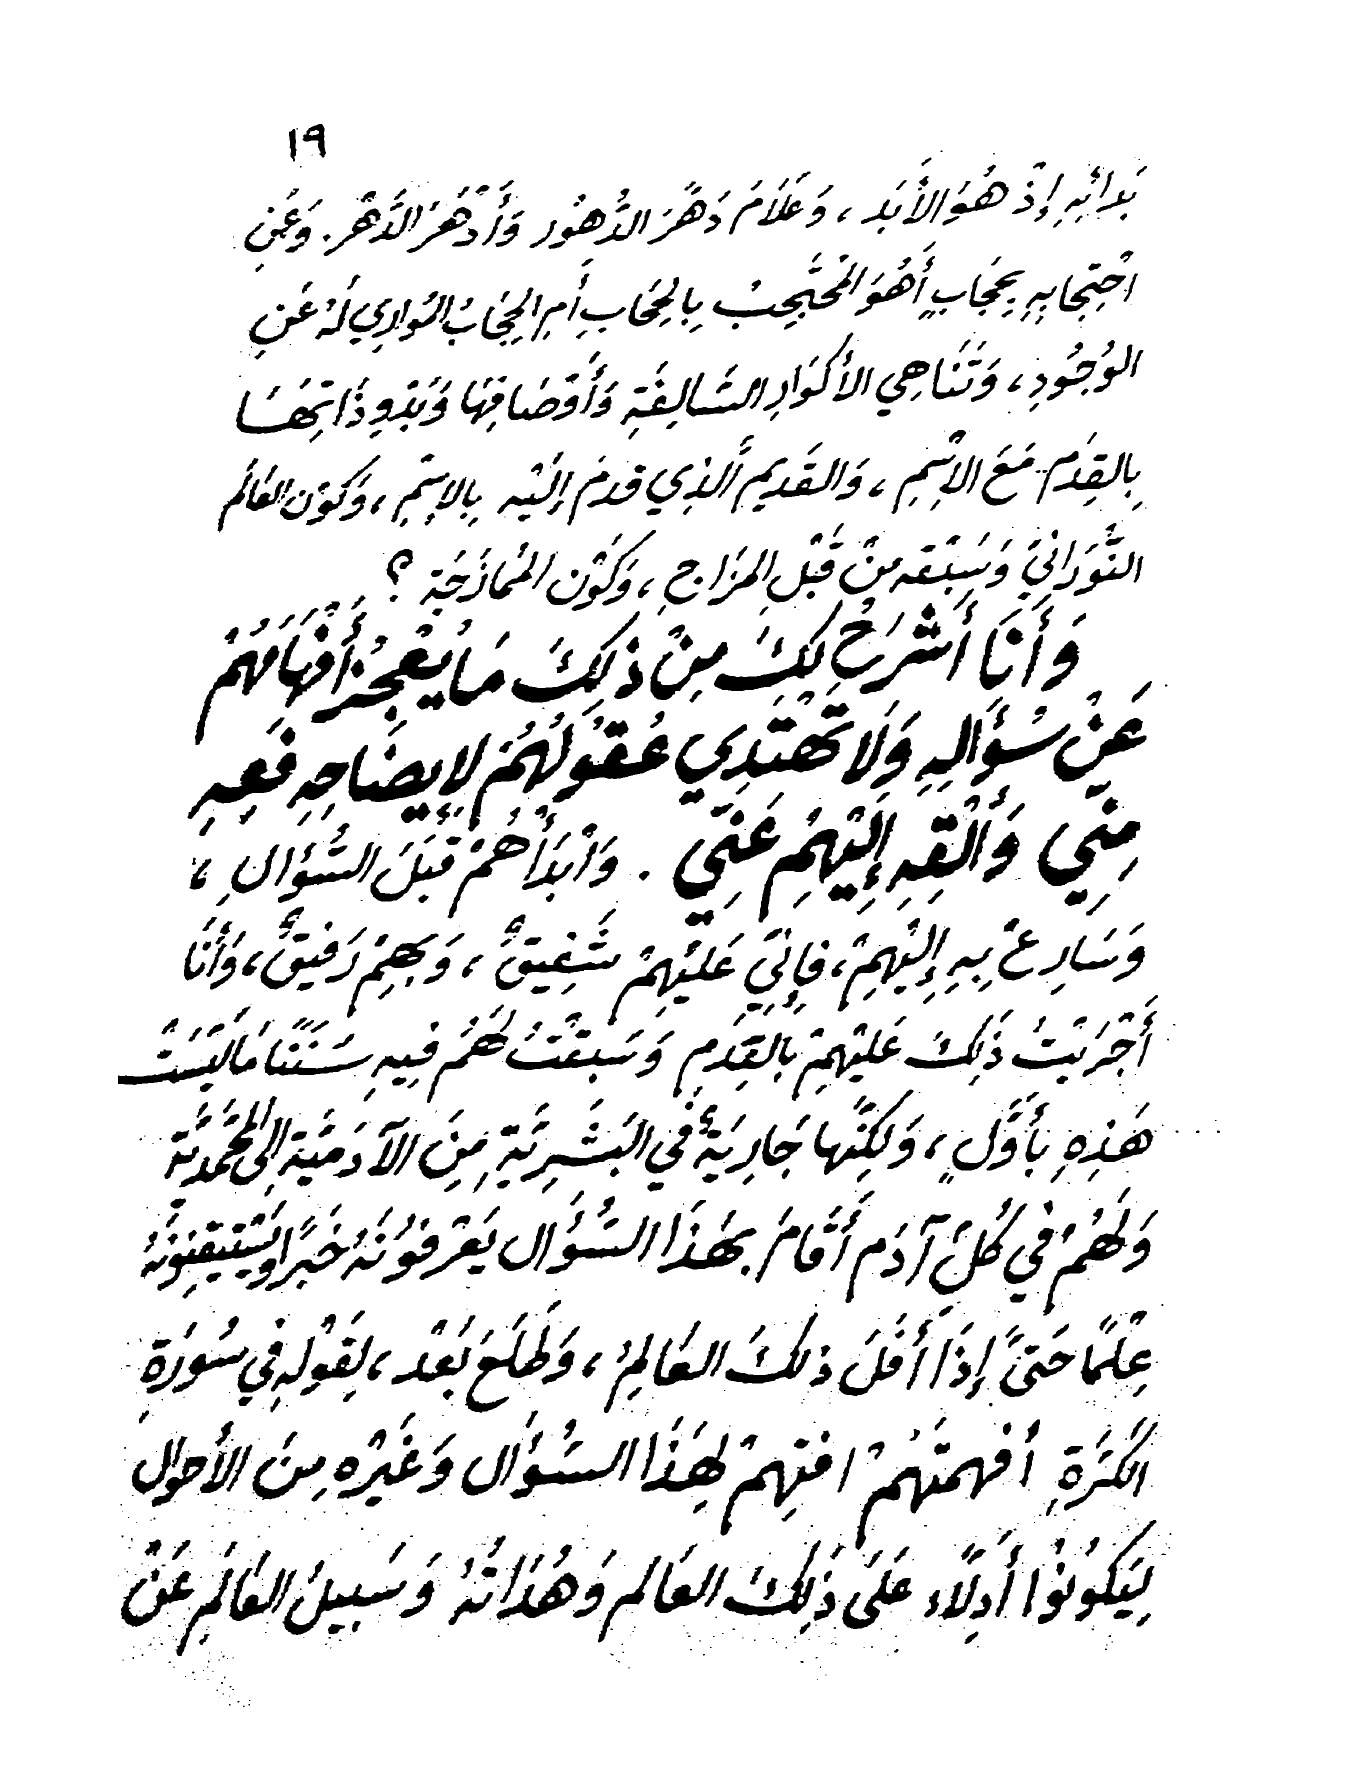 ١٩
بَدائِهِ إِذْ هُوَ الأَبَد ، وَعَلَامَ دَهَّرَ الدُّهُور وَأَدْهَرَ الدَّهْر. وَعَنِ
احْتِجابِهِ بِحِجَابٍ أَهُوَ المُحْتَجِبُ بِالحِجَابِ أَمِ الحِجَابُ المُوَارِي لَهُ عَنِ
الوُجُودِ ، وَتَنَاهِي الأَكْوَارِ السَّالِفَةِ وَأَوْصَافِهَا وَبَدْوِ ذَاتِهَا
بِالقِدَمِ مَعَ الاِسْمِ ، وَالقَدِيمِ الَّذِي قدمَ إِلَيْهِ بِالاِسْمِ ، وَكَوْنِ العَالَمِ
النُّورَانِيّ وَسَبْقه مِنْ قَبْلِ المزَاجِ ، وَكَوْنِ المُمَازَجَةِ ؟
وَأَنَا أَشْرَحُ لَكَ مِنْ ذَلِكَ مَا يُعْجِزُ أَفْهَامَهُمْ
عَنْ سُؤَالِهِ وَلَا تَهْتَدِي عُقُولُهُمْ لِإِيضَاحِهِ فَعِهِ
مِنِّي وَأَلْقِهِ إِلَيْهِمْ عَنِّي . وَابْدَأْهُمْ قَبْلَ السُّؤَالِ ،
وَسَارِعْ بِهِ إِلَيْهِمْ ، فَإِنِّي عَلَيْهِمْ شَفِيقٌ ، وَبِهِمْ رَفِيقٌ ، وَأَنَا
أَجْرَيْتُ ذَلِكَ عَلَيْهِمْ بِالقِدَمِ وَسَبَقْتُ لَهُمْ فِيهِ سَنَنًا مَا لَيْسَتْ
هَذِهِ بِأَوَّلٍ ، وَلَكِنَّهَا جَارِيَةٌ فِي البَشَرِيَّةِ مِنَ الآدَمِيَّةِ إِلَى المُحَمَّدِيَّةِ
وَلَهُمْ فِي كُلِّ آدَم أَقَامَ بِهَذَا السُّؤَال يَعْرِفُونَهُ خَبَرًا وَيَسْتَيْقِنُونَهُ
عِلْمًا حَتَّى إِذَا أَفَلَ ذلكَ العَالمُ ، وَطَلَعَ بَعْد ، لِقَوْلِهِ فِي سُورَةِ
الكَرَّةِ أفهمتَهُمْ افتِهِمْ لِهَذَا السُّؤَال وَغَيْرِهِ مِنَ الأَحوَال
لِيَكُونُوا أَدِلَّاء عَلَى ذَلِكَ العَالَمِ وَهُدَاتهُ وَسَبِيلُ العَالَمِ عَنْ